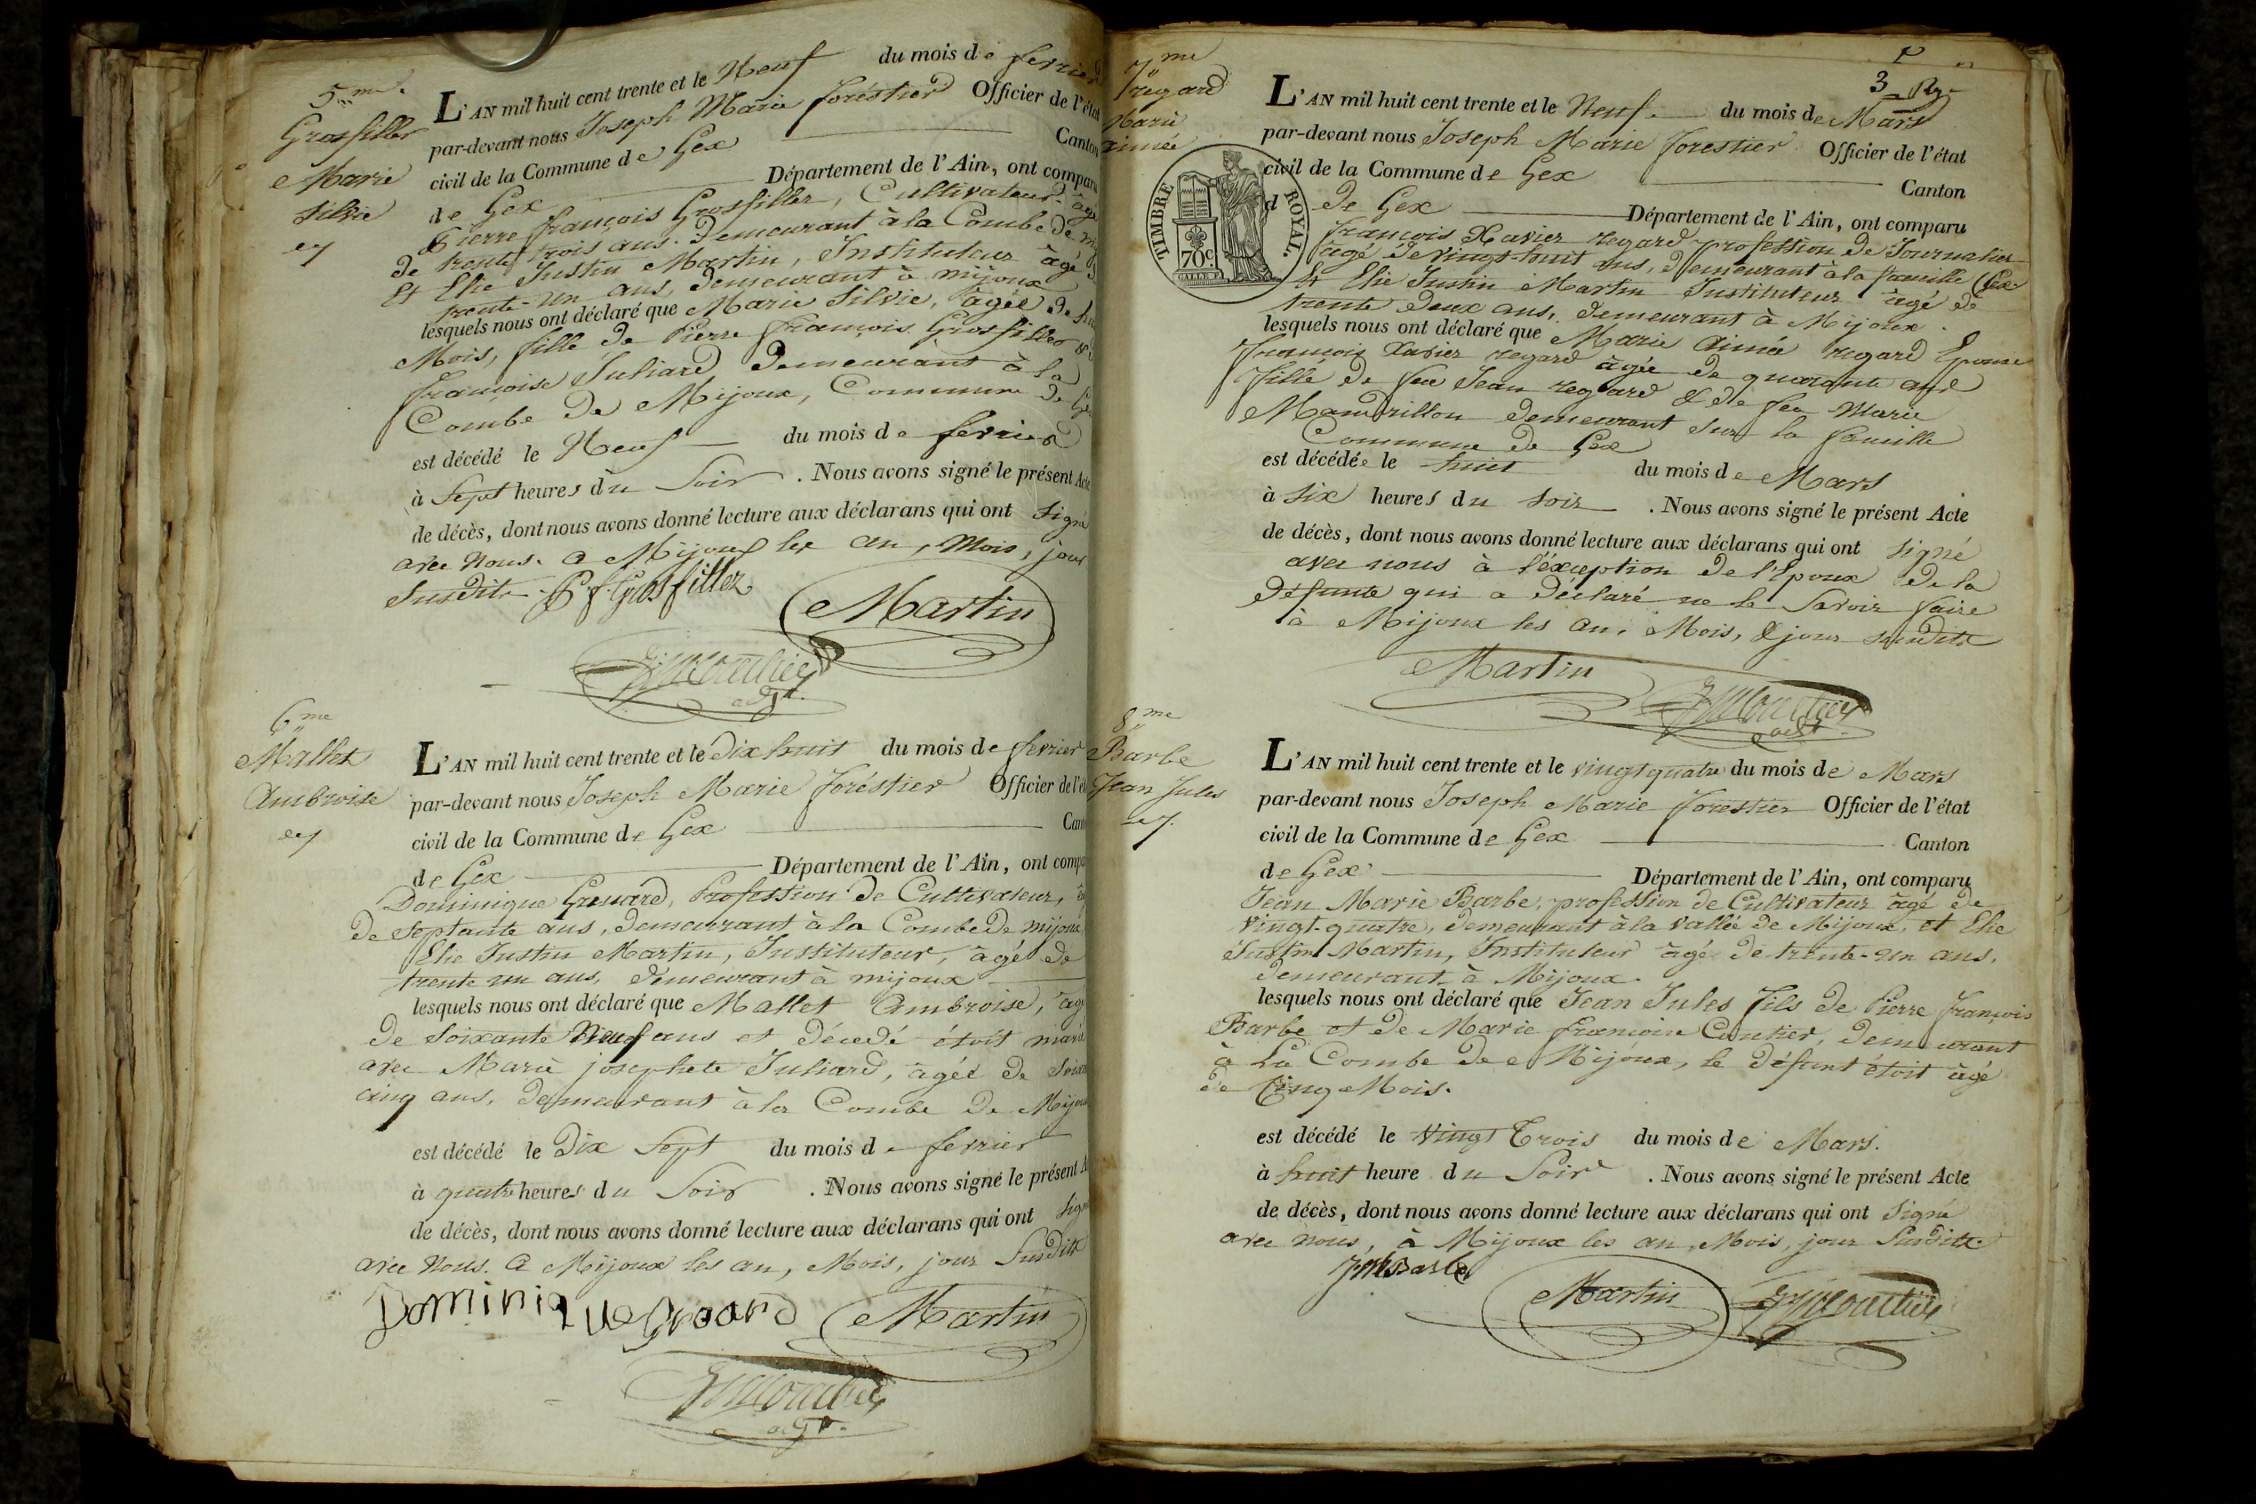 5.me
Grosfiller
Marie
Silvie
L'AN mil huit cent trente et le Neuf du mois de fevrier
par-devant nous Joseph Marie forestier Officier de l'état
civil de la Commune de Gex Canton
de Gex Département de l'Ain, ont comparu
Pierre françois Grosfiller, Cultivateur âgé
de trente trois ans. Demeurant à la Combe de
Et Elie Justin Martin, Instituteur âgé
trente-un ans, demeurant à mijoux
lesquels nous ont déclaré que Marie Silvie, âgée de
Mois, fille de Pierre françois Grosfiller
françoise Juliard Demeurant à la
Combe De Mijoux, Commune De Gex
est décédé le Neuf du mois de fevrier
à Sept heures du Soir. Nous avons signé le présent Acte
de décès, dont nous avons donné lecture aux déclarans qui ont signé
avec Nous. a Mijoux les an, Mois, jour
Susdits P f Grosfiller
Martin
adjt.
6me
Mallet
Ambroise
L'AN mil huit cent trente et le Dix huit du mois de fevrier
par-devant nous Joseph Marie foréstier Officier de l'ét
civil de la Commune de Gex Cant
de Gex Département de l'Ain, ont compa
Dominique Gruard, Profession de Cultivateur,
de Septante ans, demeurant à la Combe De mijoux
Elie Justin Martin, Instituteur, âgé de
trente un ans, demeurant à mijoux
lesquels nous ont déclaré que Mallet Ambroise, âgé
de Soixante Neuf ans et décedé étoit marié
avec Marie josephete Juliard, âgée de Soixa
cinq ans, demeurant à la Combe De Mijoux
est décédé le Dix Sept du mois de fevrier
à quatre heures du Soir. Nous avons signé le présent A
de décès, dont nous avons donné lecture aux déclarans qui ont signé
avec Nous. a Mijoux les an, Mois, jour Susdits
Dominique Gruard Martin
adjt.
7me
regard
Marie
aimée
TIMBRE ROYAL.
70c
3
L'AN mil huit cent trente et le Neuf du mois de Mars
par-devant nous Joseph Marie forestier Officier de l'état
civil de la Commune de Gex Canton
d de Gex Département de l'Ain, ont comparu
françois Xavier regard profession de Journalier
âgé de vingt-huit ans, demeurant à la faucille (Gex
Et Elie Justin Martin Instituteur âgé de
trente Deux ans, demeurant à Mijoux.
lesquels nous ont déclaré que Marie Aimée regard Epouse
françois Xavier regard âgée de quarante ans
fille de feu Jean regard & de feu Marie
Mandrillon demeurant sur la faucille
Commune de Gex
est décédée le huit du mois de Mars
à Six heures du Soir. Nous avons signé le présent Acte
de décès, dont nous avons donné lecture aux déclarans qui ont signé
avec nous à l'éxception de l'Epoux de la
défunte qui a Déclaré ne le Savoir faire
à Mijoux les an, Mois, & jour susdits
Martin
adjt.
8me
Barbe
Jean Jules
L'AN mil huit cent trente et le vingt quatre du mois de Mars
par-devant nous Joseph Marie forestier Officier de l'état
civil de la Commune de Gex Canton
de Gex Département de l'Ain, ont comparu
Jean Marie Barbe, profession de Cultivateur âgé de
vingt-quatre, demeurant à la vallée de Mijoux, et Elie
Justin Martin, Instituteur âgé de trente-un ans,
demeurant à Mijoux.
lesquels nous ont déclaré que Jean Jules fils de Pierre françois
Barbe et de Marie françoise Coutier, demeurant
à La Combe de Mijoux, le défunt étoit âgé
de Cinq Mois.
est décédé le vingt Trois du mois de Mars.
à huit heure du Soir. Nous avons signé le présent Acte
de décès, dont nous avons donné lecture aux déclarans qui ont signé
avec nous, à Mijoux les an, Mois, jour Susdits
Barbe
Martin